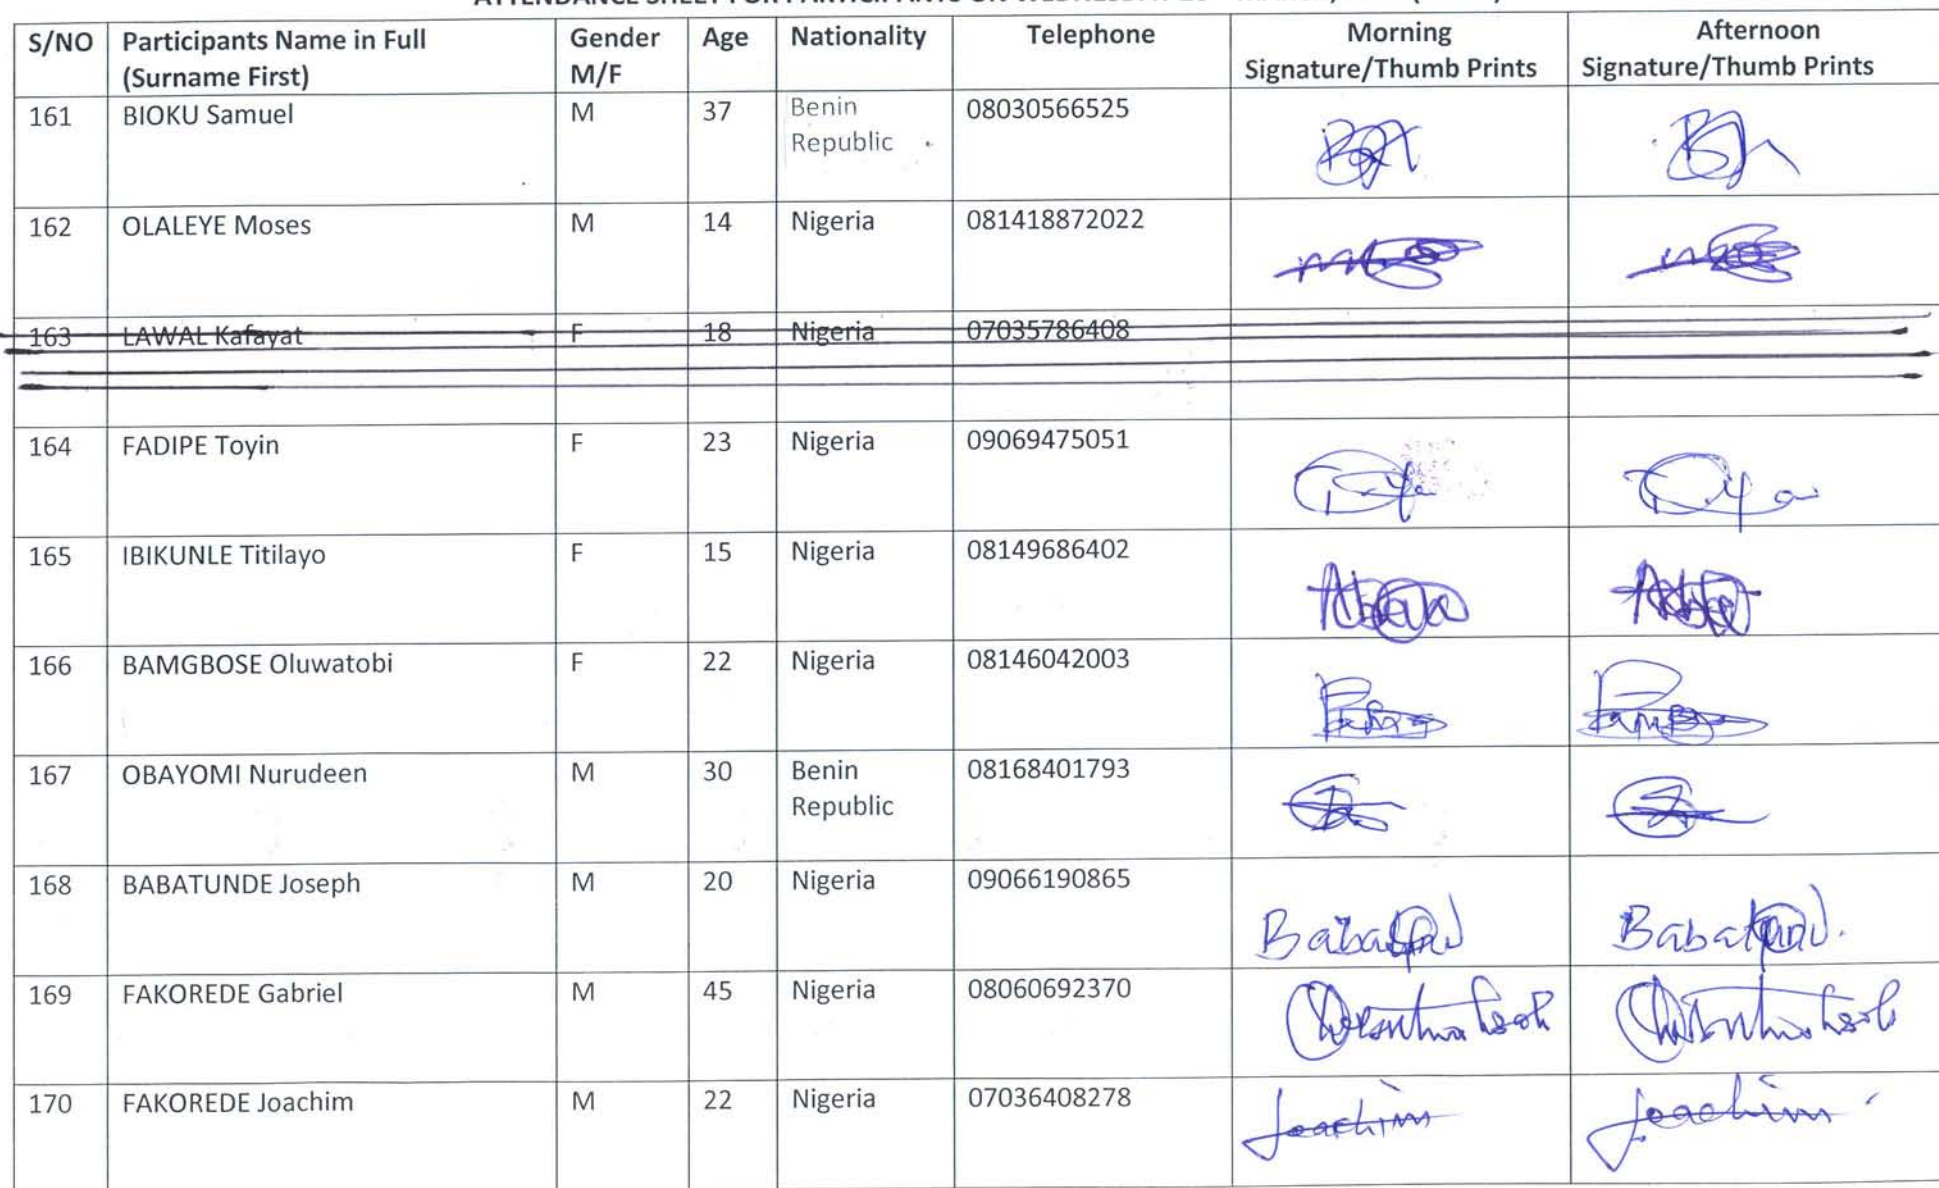 S/NO Participants Name in Full (Surname First) Gender M/F Age Nationality Telephone Morning Signature/Thumb Prints Afternoon Signature/Thumb Prints
161 BIOKU Samuel M 37 Benin Republic 08030566525
162 OLALEYE Moses M 14 Nigeria 081418872022
163 LAWAL Kafayat F 18 Nigeria 07035786408
164 FADIPE Toyin F 23 Nigeria 09069475051
165 IBIKUNLE Titilayo F 15 Nigeria 08149686402
166 BAMGBOSE Oluwatobi F 22 Nigeria 08146042003
167 OBAYOMI Nurudeen M 30 Benin Republic 08168401793
168 BABATUNDE Joseph M 20 Nigeria 09066190865
169 FAKOREDE Gabriel M 45 Nigeria 08060692370
170 FAKOREDE Joachim M 22 Nigeria 07036408278 Joachim Joachim